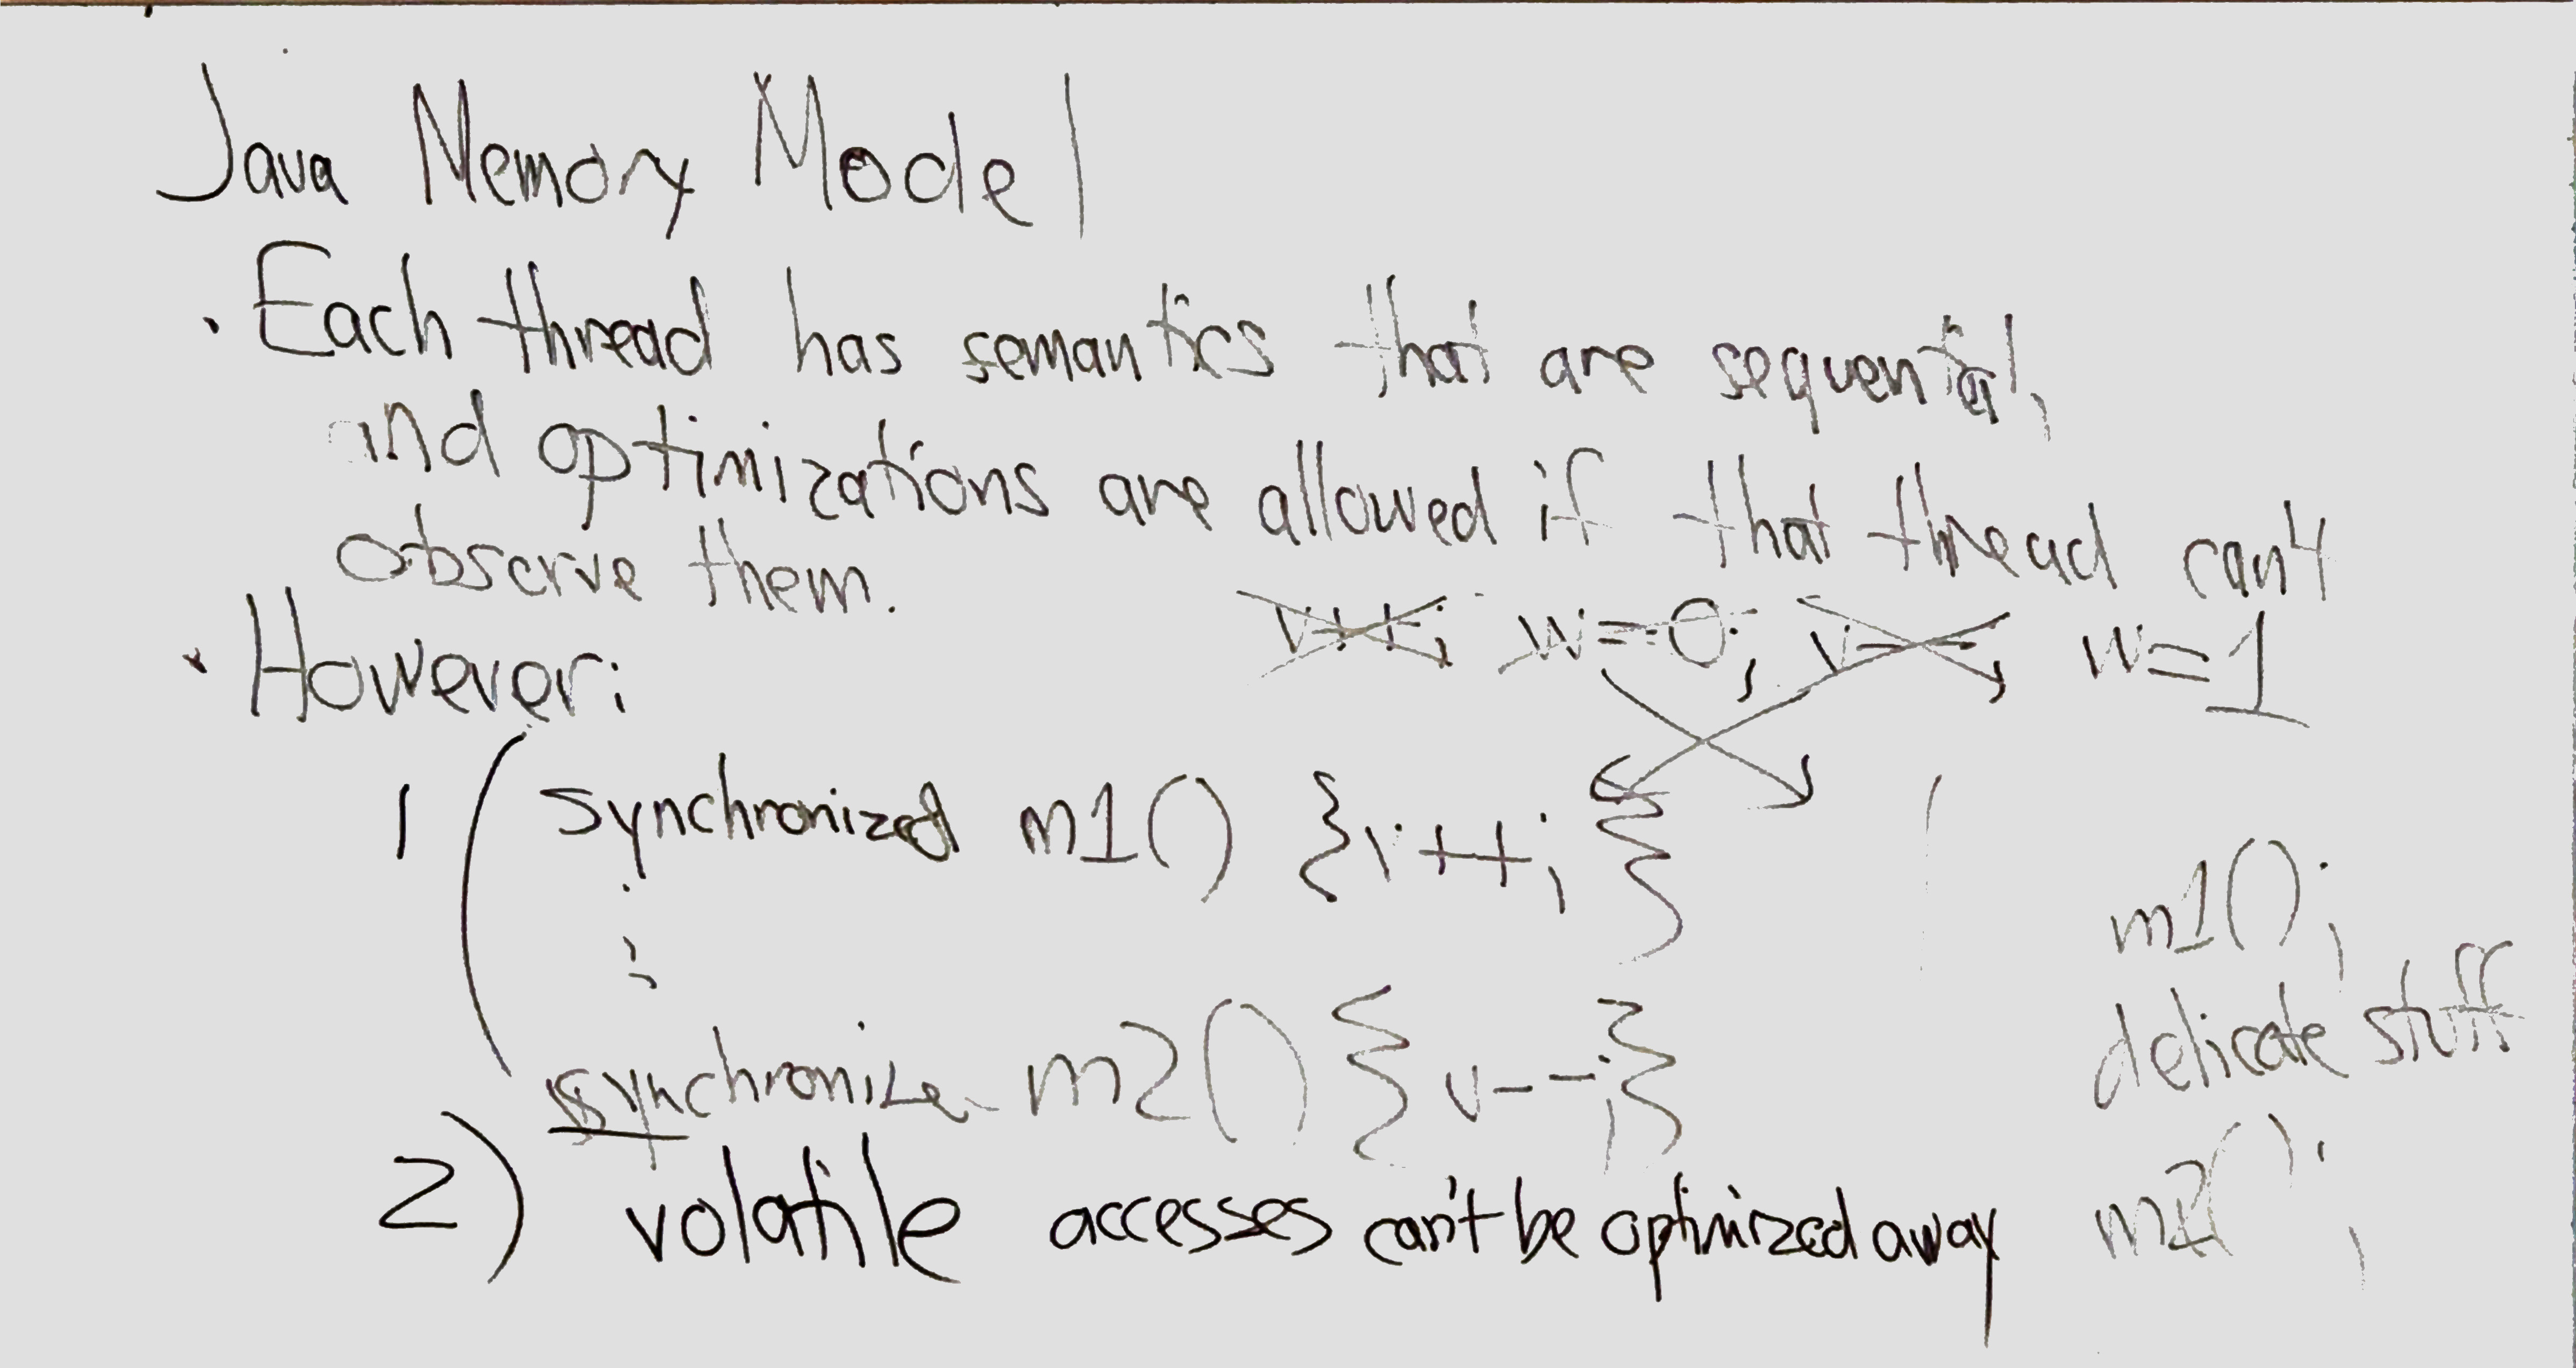 Java Memory Model
· Each thread has semantics that are sequential,
and optimizations are allowed if that thread can't
observe them.
v++; w=0; v--; w=1
· However:
1( synchronized m1() {v++;}
:
synchronize m2() {v--;}
m1();
delicate stuff
m2();
2) volatile accesses can't be optimized away